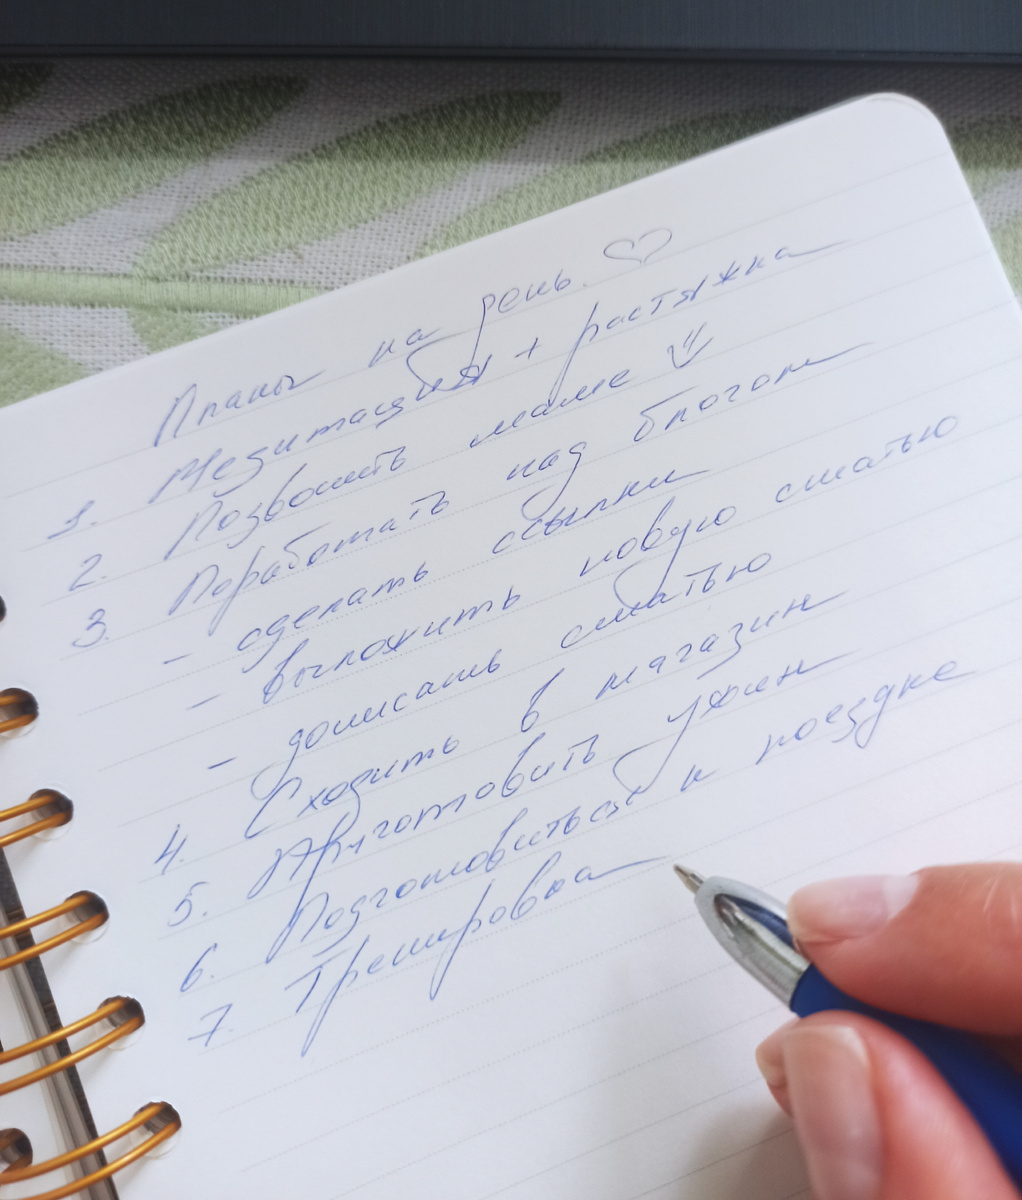 Планы на день. ♡
1. Медитация + растяжка
2. Позвонить маме
3. Поработать над блогом
- сделать ссылки
- выложить новую статью
- дописать статью
4. Сходить в магазин
5. Приготовить ужин
6. Подготовиться к поездке
7. Тренировка